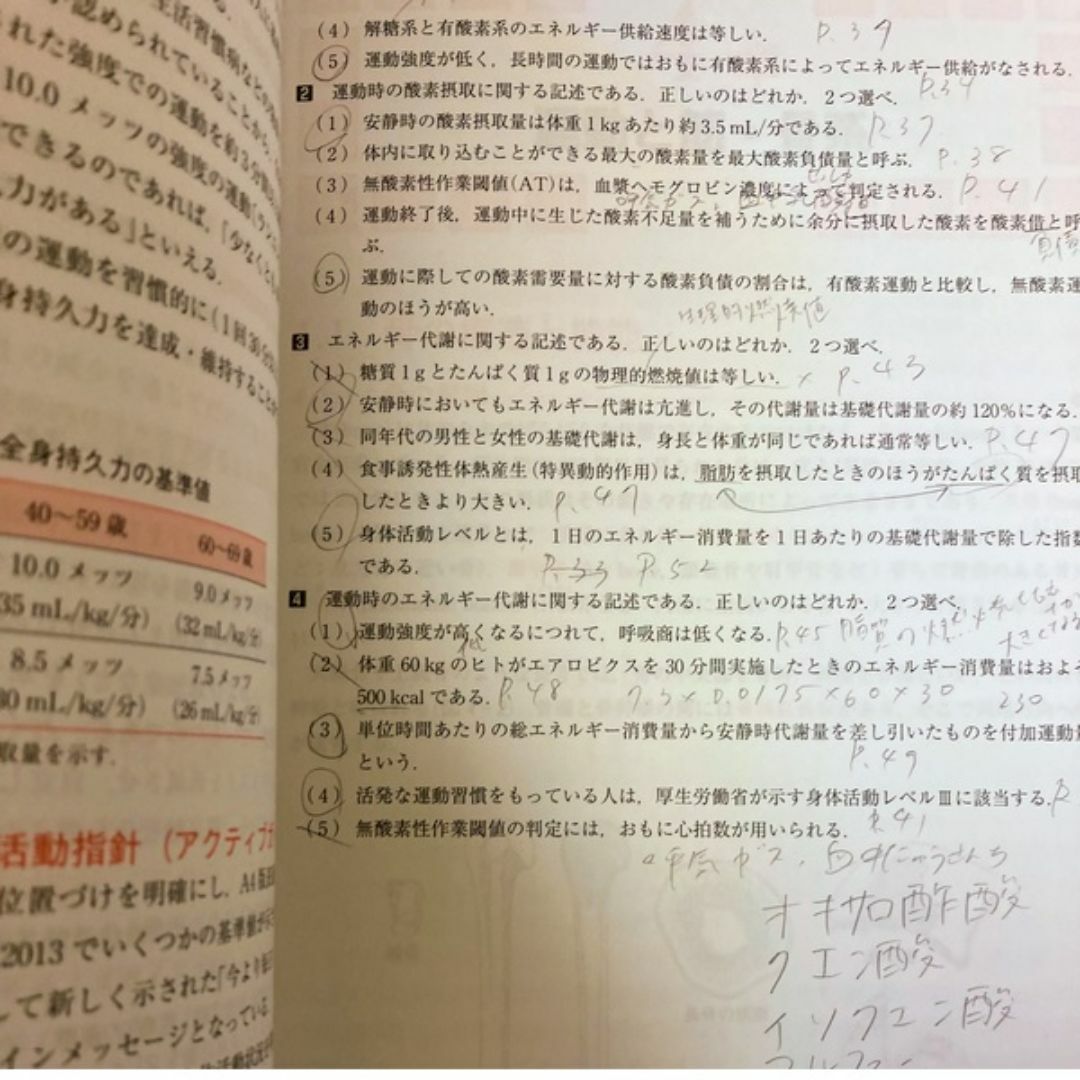 生活習慣病などの
認められていることから
された強度での運動を約3分間以
10.0 メッツの強度の運動(ラン
できるのであれば,「少なくとも
力がある」といえる.
の運動を習慣的に(1回30分以
身持久力を達成・維持すること
全身持久力の基準値
40〜59歳 60〜69歳
10.0 メッツ 9.0メッツ
35 mL/kg/分) (32 mL/kg/分)
8.5 メッツ 7.5メッツ
30 mL/kg/分) (26 mL/kg/分)
取量を示す.
活動指針(アクティブガ
位置づけを明確にし,A4
2013 でいくつかの基準値が
して新しく示された「今より
インメッセージとなっている.
(4) 解糖系と有酸素系のエネルギー供給速度は等しい. P.39
(5) 運動強度が低く,長時間の運動ではおもに有酸素系によってエネルギー供給がなされる.
2 運動時の酸素摂取に関する記述である.正しいのはどれか.2つ選べ. P.34
(1) 安静時の酸素摂取量は体重1kgあたり約3.5mL/分である. P.37
(2) 体内に取り込むことができる最大の酸素量を最大酸素負債量と呼ぶ. P.38
(3) 無酸素性作業閾値(AT)は,血漿ヘモグロビン濃度によって判定される. P.41
(4) 運動終了後,運動中に生じた酸素不足量を補うために余分に摂取した酸素を酸素借と呼
ぶ. 負債
(5) 運動に際しての酸素需要量に対する酸素負債の割合は,有酸素運動と比較し,無酸素運
動のほうが高い.
物理的燃焼値
3 エネルギー代謝に関する記述である.正しいのはどれか.2つ選べ.
(1) 糖質1gとたんぱく質1gの物理的燃焼値は等しい. × P.43
(2) 安静時においてもエネルギー代謝は亢進し,その代謝量は基礎代謝量の約120%になる.
(3) 同年代の男性と女性の基礎代謝は,身長と体重が同じであれば通常等しい. P.47
(4) 食事誘発性体熱産生(特異動的作用)は,脂肪を摂取したときのほうがたんぱく質を摂取
したときより大きい. P.47
(5) 身体活動レベルとは,1日のエネルギー消費量を1日あたりの基礎代謝量で除した指数
である. P.33 P.52
4 運動時のエネルギー代謝に関する記述である.正しいのはどれか.2つ選べ.
(1) 運動強度が高くなるにつれて,呼吸商は低くなる. P.45 脂質の燃
低
(2) 体重60kgのヒトがエアロビクスを30分間実施したときのエネルギー消費量はおよそ
500 kcalである. P.48 7.3×0.0175×60×30 230
(3) 単位時間あたりの総エネルギー消費量から安静時代謝量を差し引いたものを付加運動量
という. P.49
(4) 活発な運動習慣をもっている人は,厚生労働省が示す身体活動レベルⅢに該当する. P
(5) 無酸素性作業閾値の判定には,おもに心拍数が用いられる. P.41
呼気ガス,血中にゅうさんち
オキサロ酢酸
クエン酸
イソクエン酸